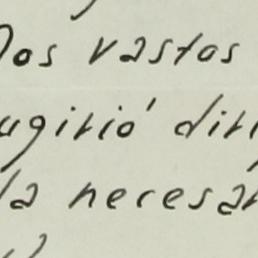 los vastos
ugirió diri
la necesa